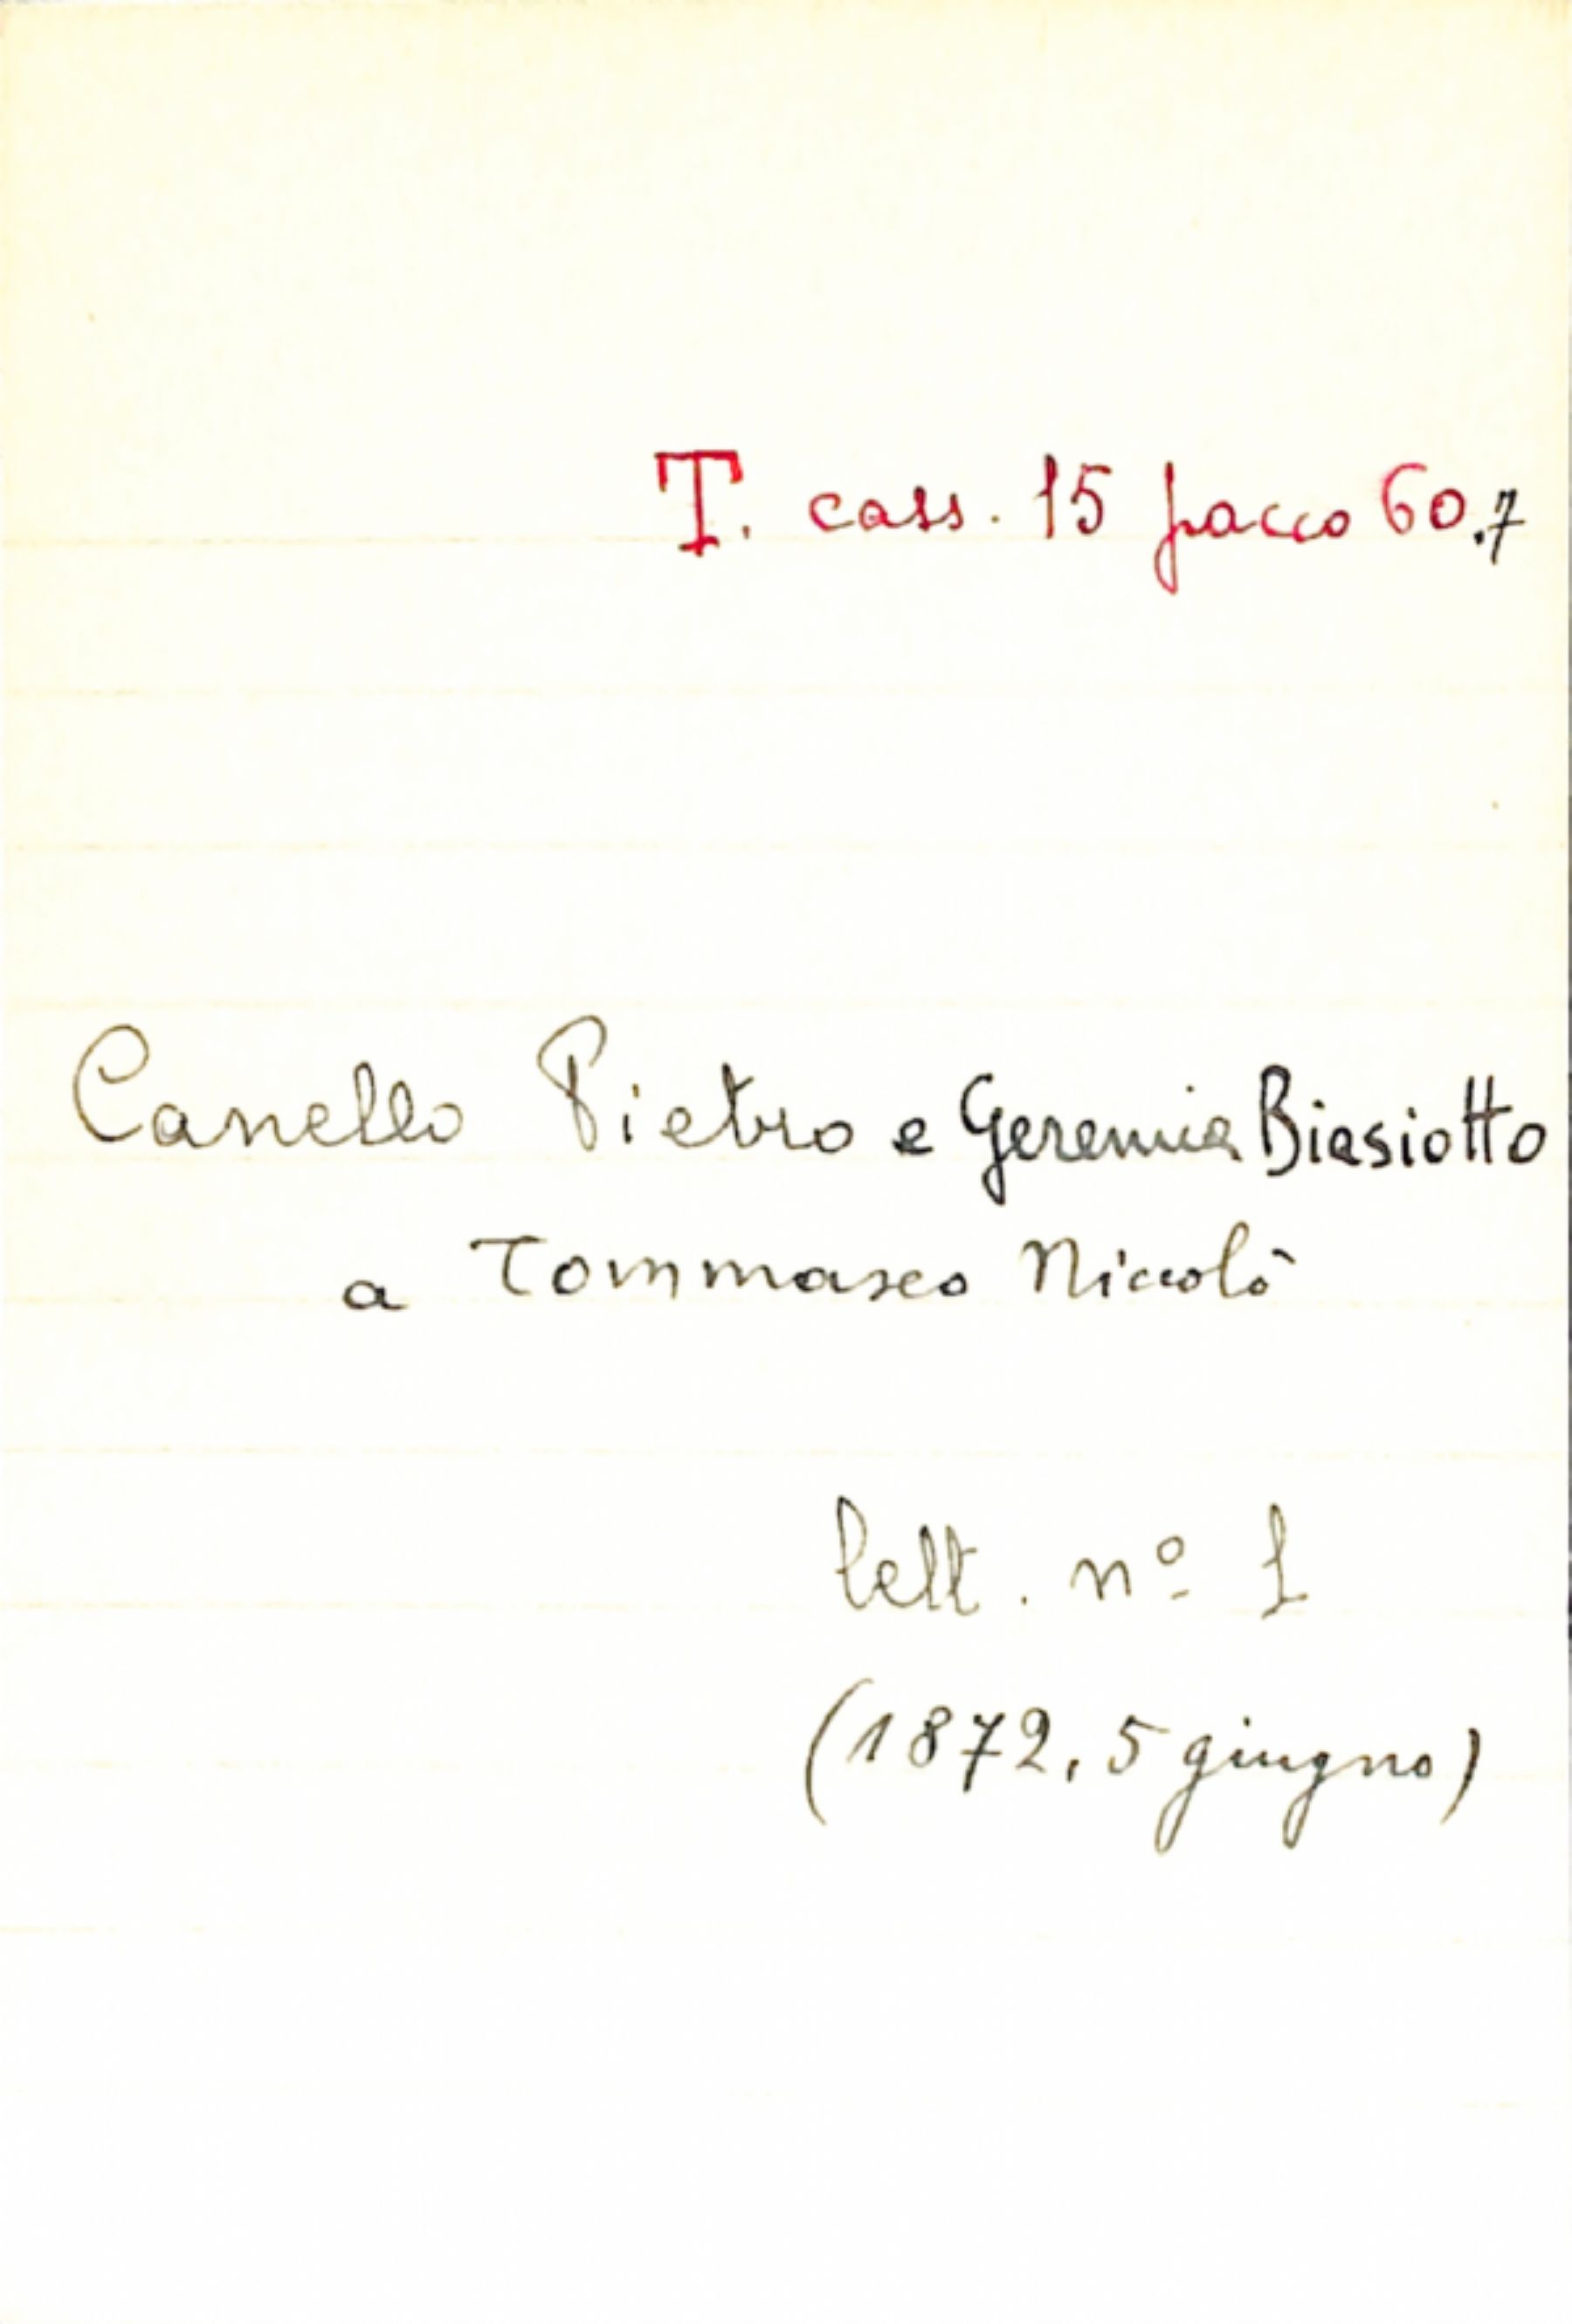 T. cass. 15 pacco 60.7
Canello Pietro e Geremia Biasiotto
a Tommaseo Niccolò
lett. nº 1
(1872, 5 giugno)